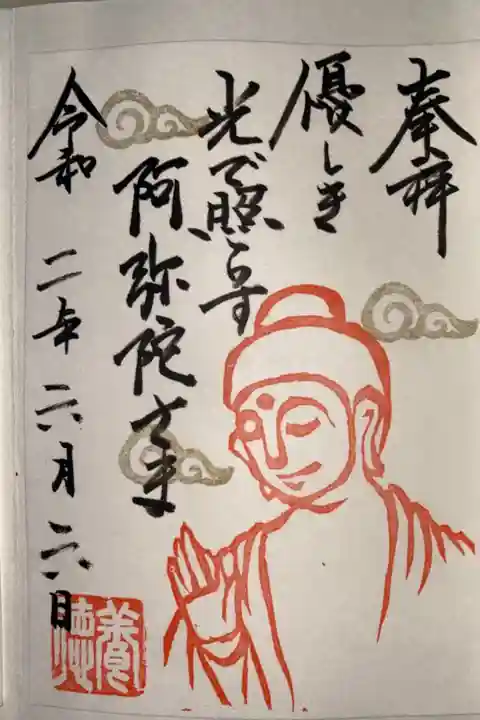 奉拝
優しき
光で照らす
阿弥陀さま
令和二年六月六日
養徳